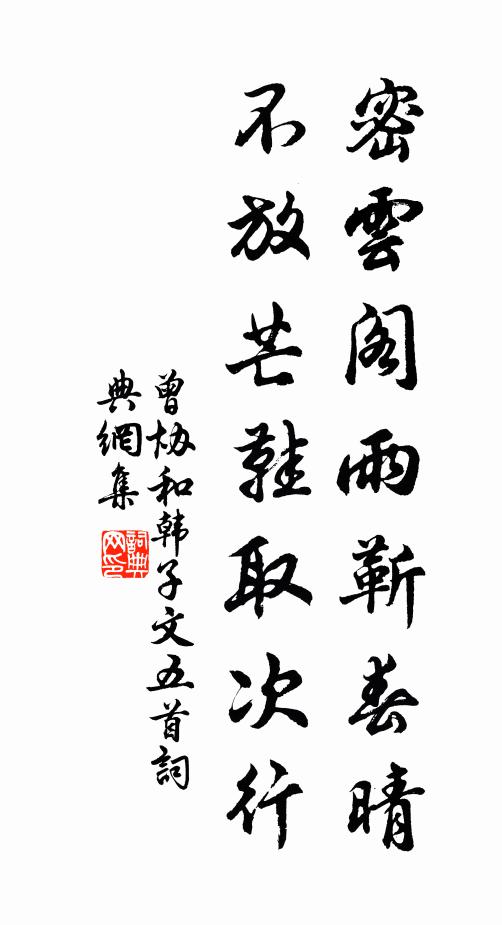 密雲閣雨靳春晴
不放芒鞋取次行
曾协和韩子文五首詞
典網集
詞典
网印